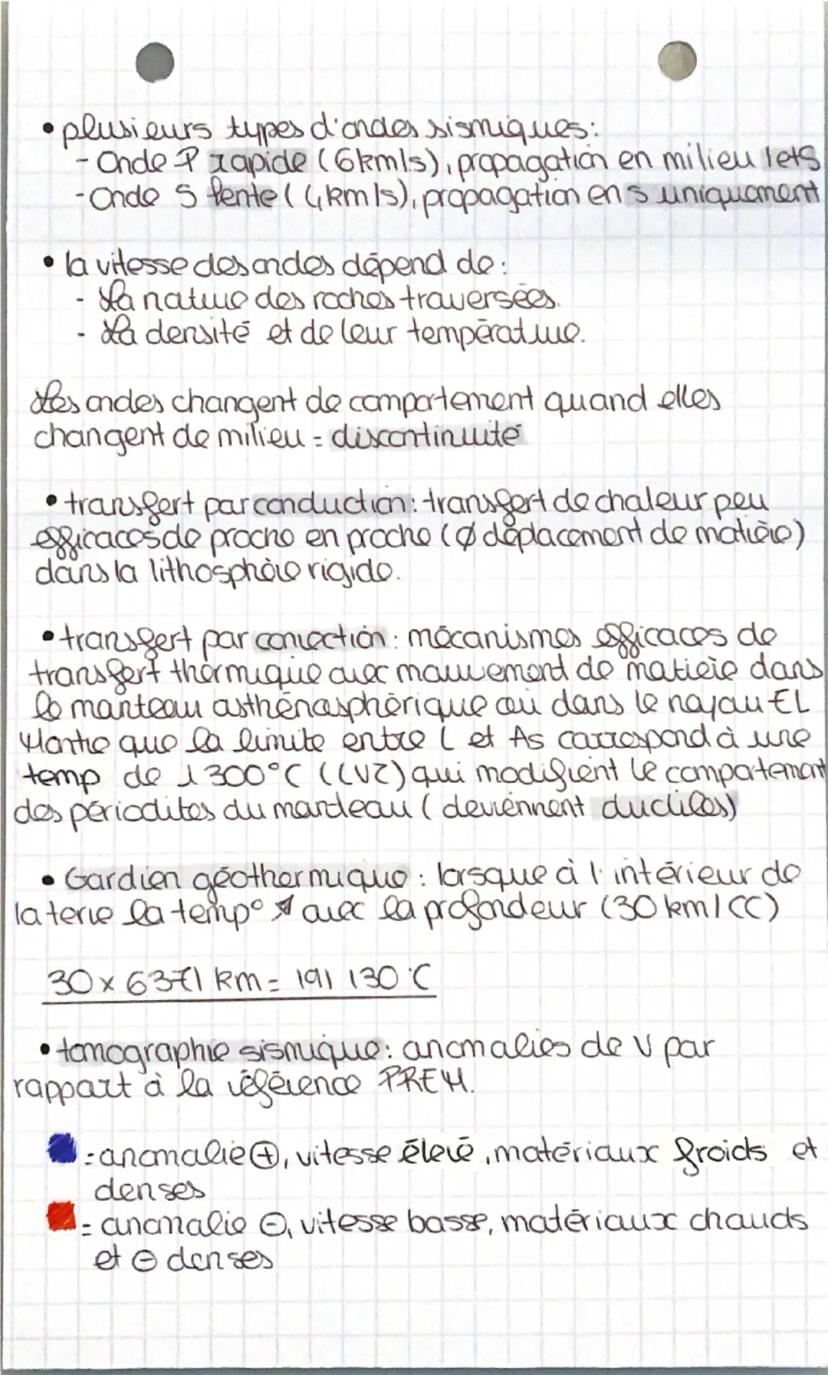 • plusieurs types d'ondes sismiques:
- Onde P rapide (6km/s), propagation en milieu l et S
- Onde S lente (4km/s), propagation en S uniquement
• la vitesse des ondes dépend de :
- La nature des roches traversées.
- La densité et de leur température.
Les ondes changent de comportement quand elles
changent de milieu = discontinuité
• transfert par conduction : transfert de chaleur peu
efficaces de proche en proche (Ø déplacement de matière)
dans la lithosphère rigide.
• transfert par convection : mécanismes efficaces de
transfert thermique avec mouvement de matière dans
le manteau asthénosphérique ou dans le noyau EL
Montre que la limite entre L et As correspond à une
temp de 1300°C (LVZ) qui modifient le comportement
des périodites du manteau (deviennent ductiles)
• Gardien géothermique : lorsque à l'intérieur de
la terre la temp° ↗ avec la profondeur (30 km/CC)
30 x 6371 km = 191 130°C
• tomographie sismique : anomalies de V par
rapport à la référence PREM.
= anomalie ⊕, vitesse élevé, matériaux froids et
denses
= anomalie ⊖, vitesse basse, matériaux chauds
et ⊖ denses